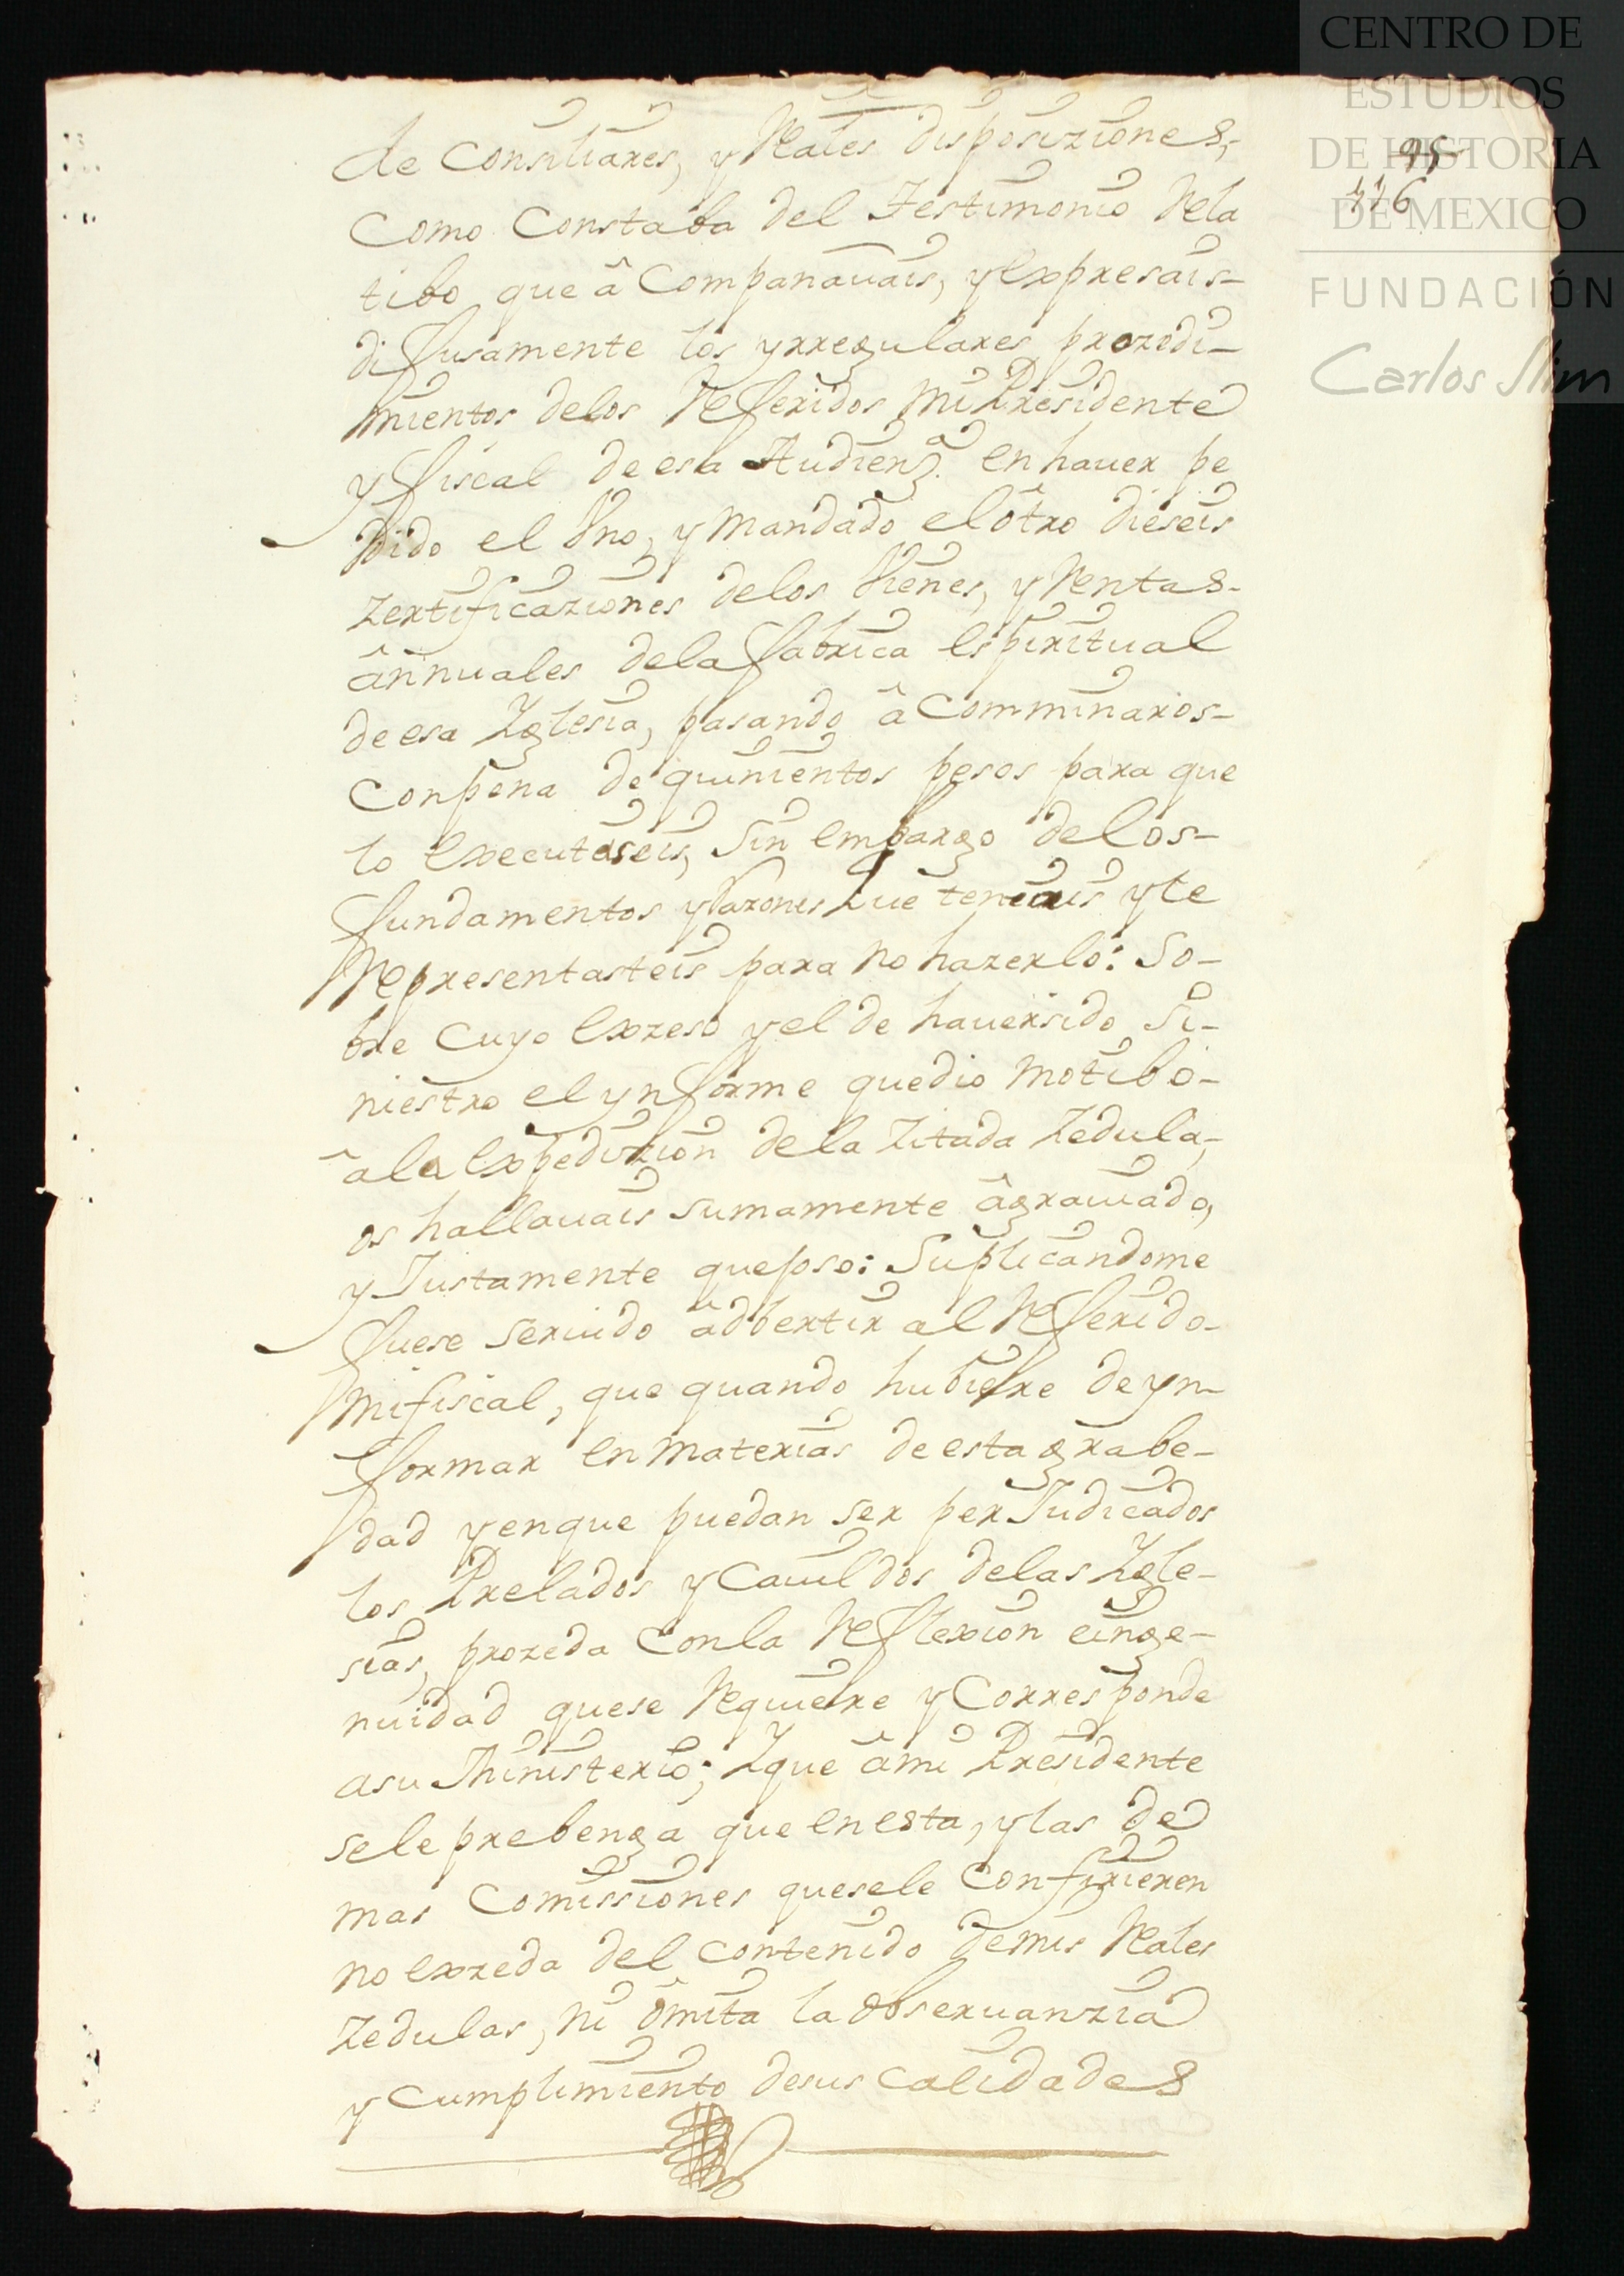 CENTRO DE
ESTUDIOS
DE HISTORIA
DE MEXICO
FUNDACIÓN
Carlos Slim
95
116
de Consiliares, y Reales disposiziones,
como Constaba del Testimonio Rela
tibo que â Compañauais, y expresais-
difusamente los yrregulares prozedi-
mientos delos Referidos mi Presidente
y fiscal de esa Audienz.ª en hauer pe
dido el Vno, y mandado el ôtro dieseis
zertificaziones delos Vienes, y Rentas-
ânnuales dela fabrica espiritual
de esa Yglesia, pasando â Comminaros-
Conpena de quinientos pesos para que
lo executaseis, Sin embargo de los-
fundamentos y Razones que teniais y le
Representasteis para no hazerlo: So-
bre Cuyo exzeso y el de hauersido Si-
niestro el ynforme quedio motibo-
âla expedizion de la Zitada Zedula,
os hallauais sumamente âgrauiado,
y Justamente quejoso: Suplicandome
fuese seruido âdbertir al Referido-
mifiscal, que quando hubiere de yn-
formar en materias de esta grabe-
dad y enque puedan ser perJudicados
los Prelados y Cauildos delas Ygle-
sias, prozeda Conla Reflexion einge-
nuidad quese Requiere y Corresponde
asu Ministerio; Yque âmi Presidente
sele prebenga que en esta, y las de
mas Comissiones quesele Confirieren
no exzeda del contenido demis Reales
Zedulas, ni ômita la obseruanzia
y Cumplimiento desus Calidades